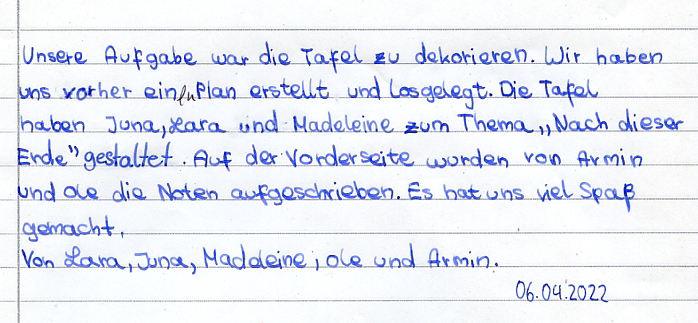 Unsere Aufgabe war die Tafel zu dekorieren. Wir haben
uns vorher einen Plan erstellt und losgelegt. Die Tafel
haben Juna, Lara und Madeleine zum Thema „Nach dieser
Erde" gestaltet. Auf der Vorderseite wurden von Armin
und Ole die Noten aufgeschrieben. Es hat uns viel Spaß
gemacht.
Von Lara, Juna, Madaleine, Ole und Armin.
06.04.2022